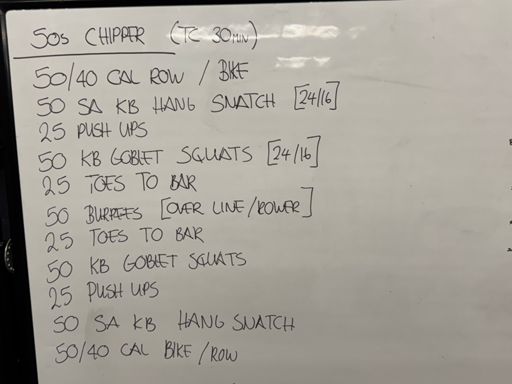 50s CHIPPER (TC 30MIN)
50/40 CAL ROW / BIKE
50 SA KB HANG SNATCH [24/16]
25 PUSH UPS
50 KB GOBLET SQUATS [24/16]
25 TOES TO BAR
50 BURPEES [OVER LINE/ROWER]
25 TOES TO BAR
50 KB GOBLET SQUATS
25 PUSH UPS
50 SA KB HANG SNATCH
50/40 CAL BIKE / ROW